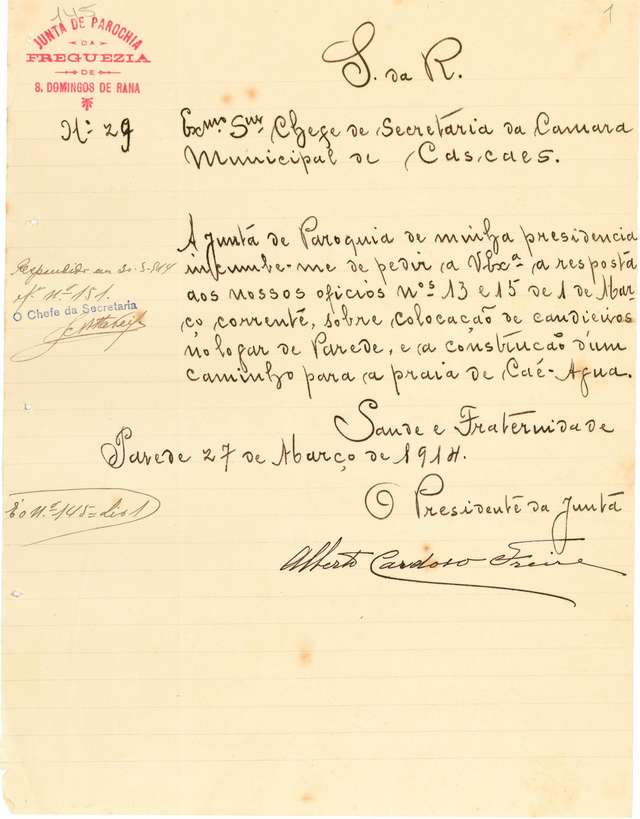 145
1
JUNTA DE PAROCHIA
DA
FREGUEZIA
DE
S. DOMINGOS DE RANA
S. da R.
Nº 29
Exmº Snr Chefe de Secretaria da Camara
Municipal de Cascaes.
A Junta de Paroquia de minha presidencia
incumbe-me de pedir a V. Exª a resposta
aos nossos oficios nos 13 e 15 de 1 de Mar
ço corrente, sobre colocacão de candieiros
no logar de Parede, e a construcão d'um
caminho para a praia de Caé-Agua.
Respondido em 30-3-914
of. nº 151.
O Chefe da Secretaria
Saude e Fraternidade
Parede 27 de Março de 1914.
O Presidente da Junta
Alberto Cardoso Freire
É o nº 145= dis 1